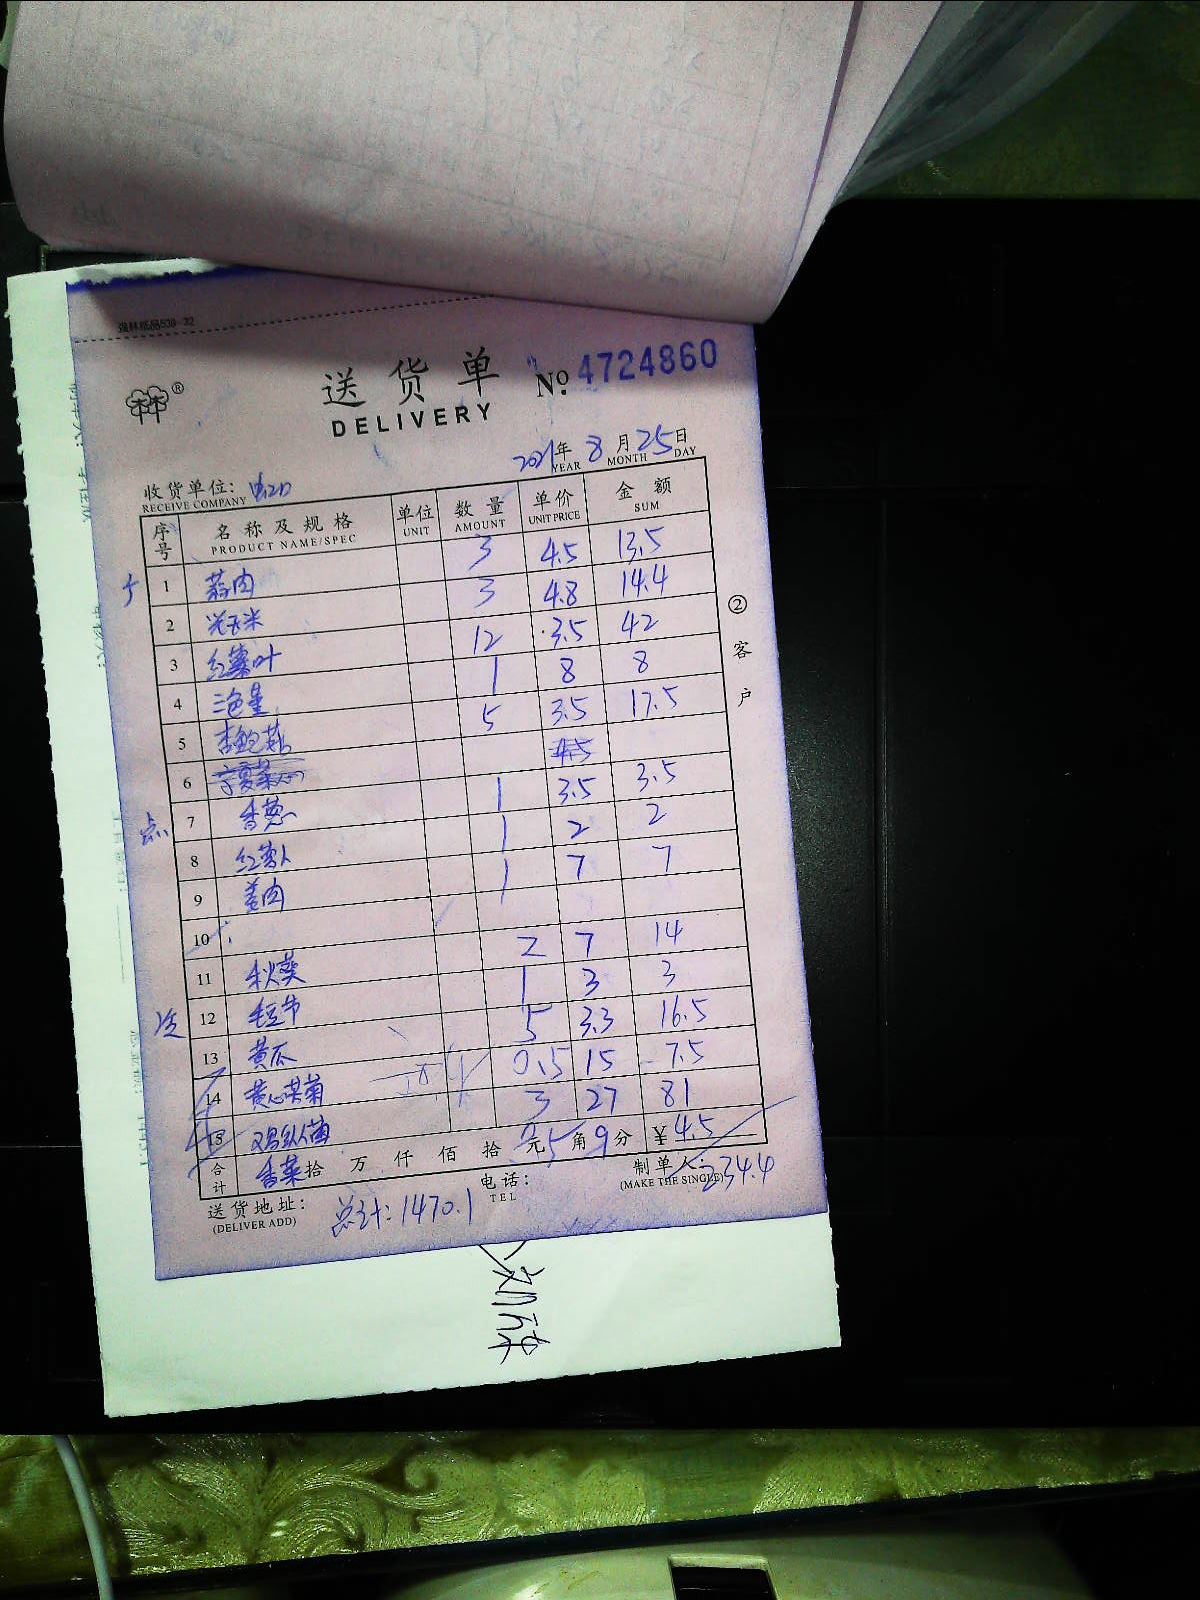 强林纸品539-32
送货单 № 4724860
DELIVERY
2021年 8 月 25 日
YEAR MONTH DAY
收货单位:
RECEIVE COMPANY
序号 名称及规格 单位 数量 单价 金额
PRODUCT NAME/SPEC UNIT AMOUNT UNIT PRICE SUM
1 蒜肉 3 4.5 13.5
2 光玉米 3 4.8 14.4
3 红薯叶 12 3.5 42
4 8 8
5 杏鲍菇 5 3.5 17.5
6 4.5
7 香葱 1 3.5 3.5
8 1 2 2
9 姜肉 1 7 7
10
11 秋葵 2 7 14
12 1 3 3
13 黄瓜 5 3.3 16.5
14 0.5 15 7.5
15 3 27 81
合计 香菜 拾 万 仟 佰 拾 元 5 角 9 分 ¥ 4.5
送货地址: 电话: 制单人: 234.4
(DELIVER ADD) TEL (MAKE THE SINGLE)
总计:1470.1
②客户